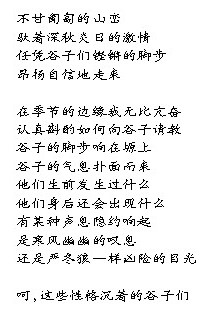 不甘匍匐的山峦
驮著深秋炎日的激情
任凭谷子们铿锵的脚步
昂扬自信地走来
在季节的边缘我无比亢奋
认真斟酌如何向谷子请教
谷子的脚步响在塬上
谷子的气息扑面而来
他们生前发生过什么
他们身后还会出现什么
有某种声息隐约响起
是寒风幽幽的叹息
还是严冬狼一样凶险的目光
呵,这些性格沉著的谷子们